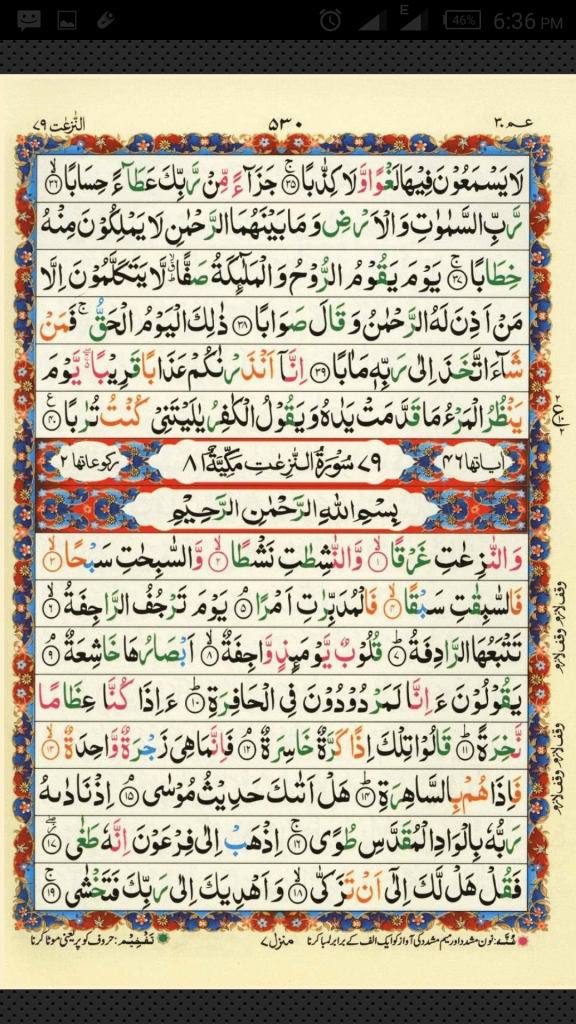 E 46% 6:36 PM
النّٰزعٰت ٧٩ ۵۳۰ عـم ٣٠
لَا يَسْمَعُوْنَ فِيْهَا لَغْوًا وَّلَا كِذّٰبًا ۚ‏﴿۳۵﴾ جَزَآءً مِّنْ رَّبِّكَ عَطَآءً حِسَابًا ۙ‏﴿۳۶﴾
رَّبِّ السَّمٰوٰتِ وَالْاَرْضِ وَمَا بَيْنَهُمَا الرَّحْمٰنِ لَا يَمْلِكُوْنَ مِنْهُ
خِطَابًا ۚ‏﴿۳۷﴾ يَوْمَ يَقُوْمُ الرُّوْحُ وَالْمَلٰٓئِكَةُ صَفًّا ۙۗ لَّا يَتَكَلَّمُوْنَ اِلَّا
مَنْ اَذِنَ لَهُ الرَّحْمٰنُ وَقَالَ صَوَابًا ‏﴿۳۸﴾ ذٰلِكَ الْيَوْمُ الْحَقُّ ۚ فَمَنْ
شَآءَ اتَّخَذَ اِلٰى رَبِّهٖ مَاٰبًا ‏﴿۳۹﴾ اِنَّاۤ اَنْذَرْنٰكُمْ عَذَابًا قَرِيْبًا ۖۚ يَّوْمَ
يَنْظُرُ الْمَرْءُ مَا قَدَّمَتْ يَدٰهُ وَيَقُوْلُ الْكٰفِرُ يٰلَيْتَنِيْ كُنْتُ تُرٰبًا ‏﴿۴۰﴾
اٰیاتها ٤٦ ٧٩ سُوْرَةُ النّٰزِعٰتِ مَكِّيَّةٌ ٨١ رکوعاتها ٢
بِسْمِ اللّٰهِ الرَّحْمٰنِ الرَّحِيْمِ
وَالنّٰزِعٰتِ غَرْقًا ۙ‏﴿۱﴾ وَّالنّٰشِطٰتِ نَشْطًا ۙ‏﴿۲﴾ وَّالسّٰبِحٰتِ سَبْحًا ۙ‏﴿۳﴾
فَالسّٰبِقٰتِ سَبْقًا ۙ‏﴿۴﴾ فَالْمُدَبِّرٰتِ اَمْرًا ۘ‏﴿۵﴾ يَوْمَ تَرْجُفُ الرَّاجِفَةُ ۙ‏﴿۶﴾
تَتْبَعُهَا الرَّادِفَةُ ؕ‏﴿۷﴾ قُلُوْبٌ يَّوْمَئِذٍ وَّاجِفَةٌ ۙ‏﴿۸﴾ اَبْصَارُهَا خَاشِعَةٌ ۘ‏﴿۹﴾
يَقُوْلُوْنَ ءَاِنَّا لَمَرْدُوْدُوْنَ فِى الْحَافِرَةِ ؕ‏﴿۱۰﴾ ءَاِذَا كُنَّا عِظَامًا
نَّخِرَةً ؕ‏﴿۱۱﴾ قَالُوْا تِلْكَ اِذًا كَرَّةٌ خَاسِرَةٌ ۘ‏﴿۱۲﴾ فَاِنَّمَا هِيَ زَجْرَةٌ وَّاحِدَةٌ ۙ‏﴿۱۳﴾
فَاِذَا هُمْ بِالسَّاهِرَةِ ؕ‏﴿۱۴﴾ هَلْ اَتٰىكَ حَدِيْثُ مُوْسٰى ۘ‏﴿۱۵﴾ اِذْ نَادٰىهُ
رَبُّهٗ بِالْوَادِ الْمُقَدَّسِ طُوًى ۚ‏﴿۱۶﴾ اِذْهَبْ اِلٰى فِرْعَوْنَ اِنَّهٗ طَغٰى ۖ‏﴿۱۷﴾
فَقُلْ هَلْ لَّكَ اِلٰۤى اَنْ تَزَكّٰى ۙ‏﴿۱۸﴾ وَاَهْدِيَكَ اِلٰى رَبِّكَ فَتَخْشٰى ۚ‏﴿۱۹﴾
وقف لازم وقف لازم
وقف لازم وقف لازم
غُنَّه: نون مشدد اور میم مشدد کی آواز کو ایک الف کے برابر لمبا کرنا منزل ٧ تَفْخِیْم: حروف کو پر یعنی موٹا کرنا